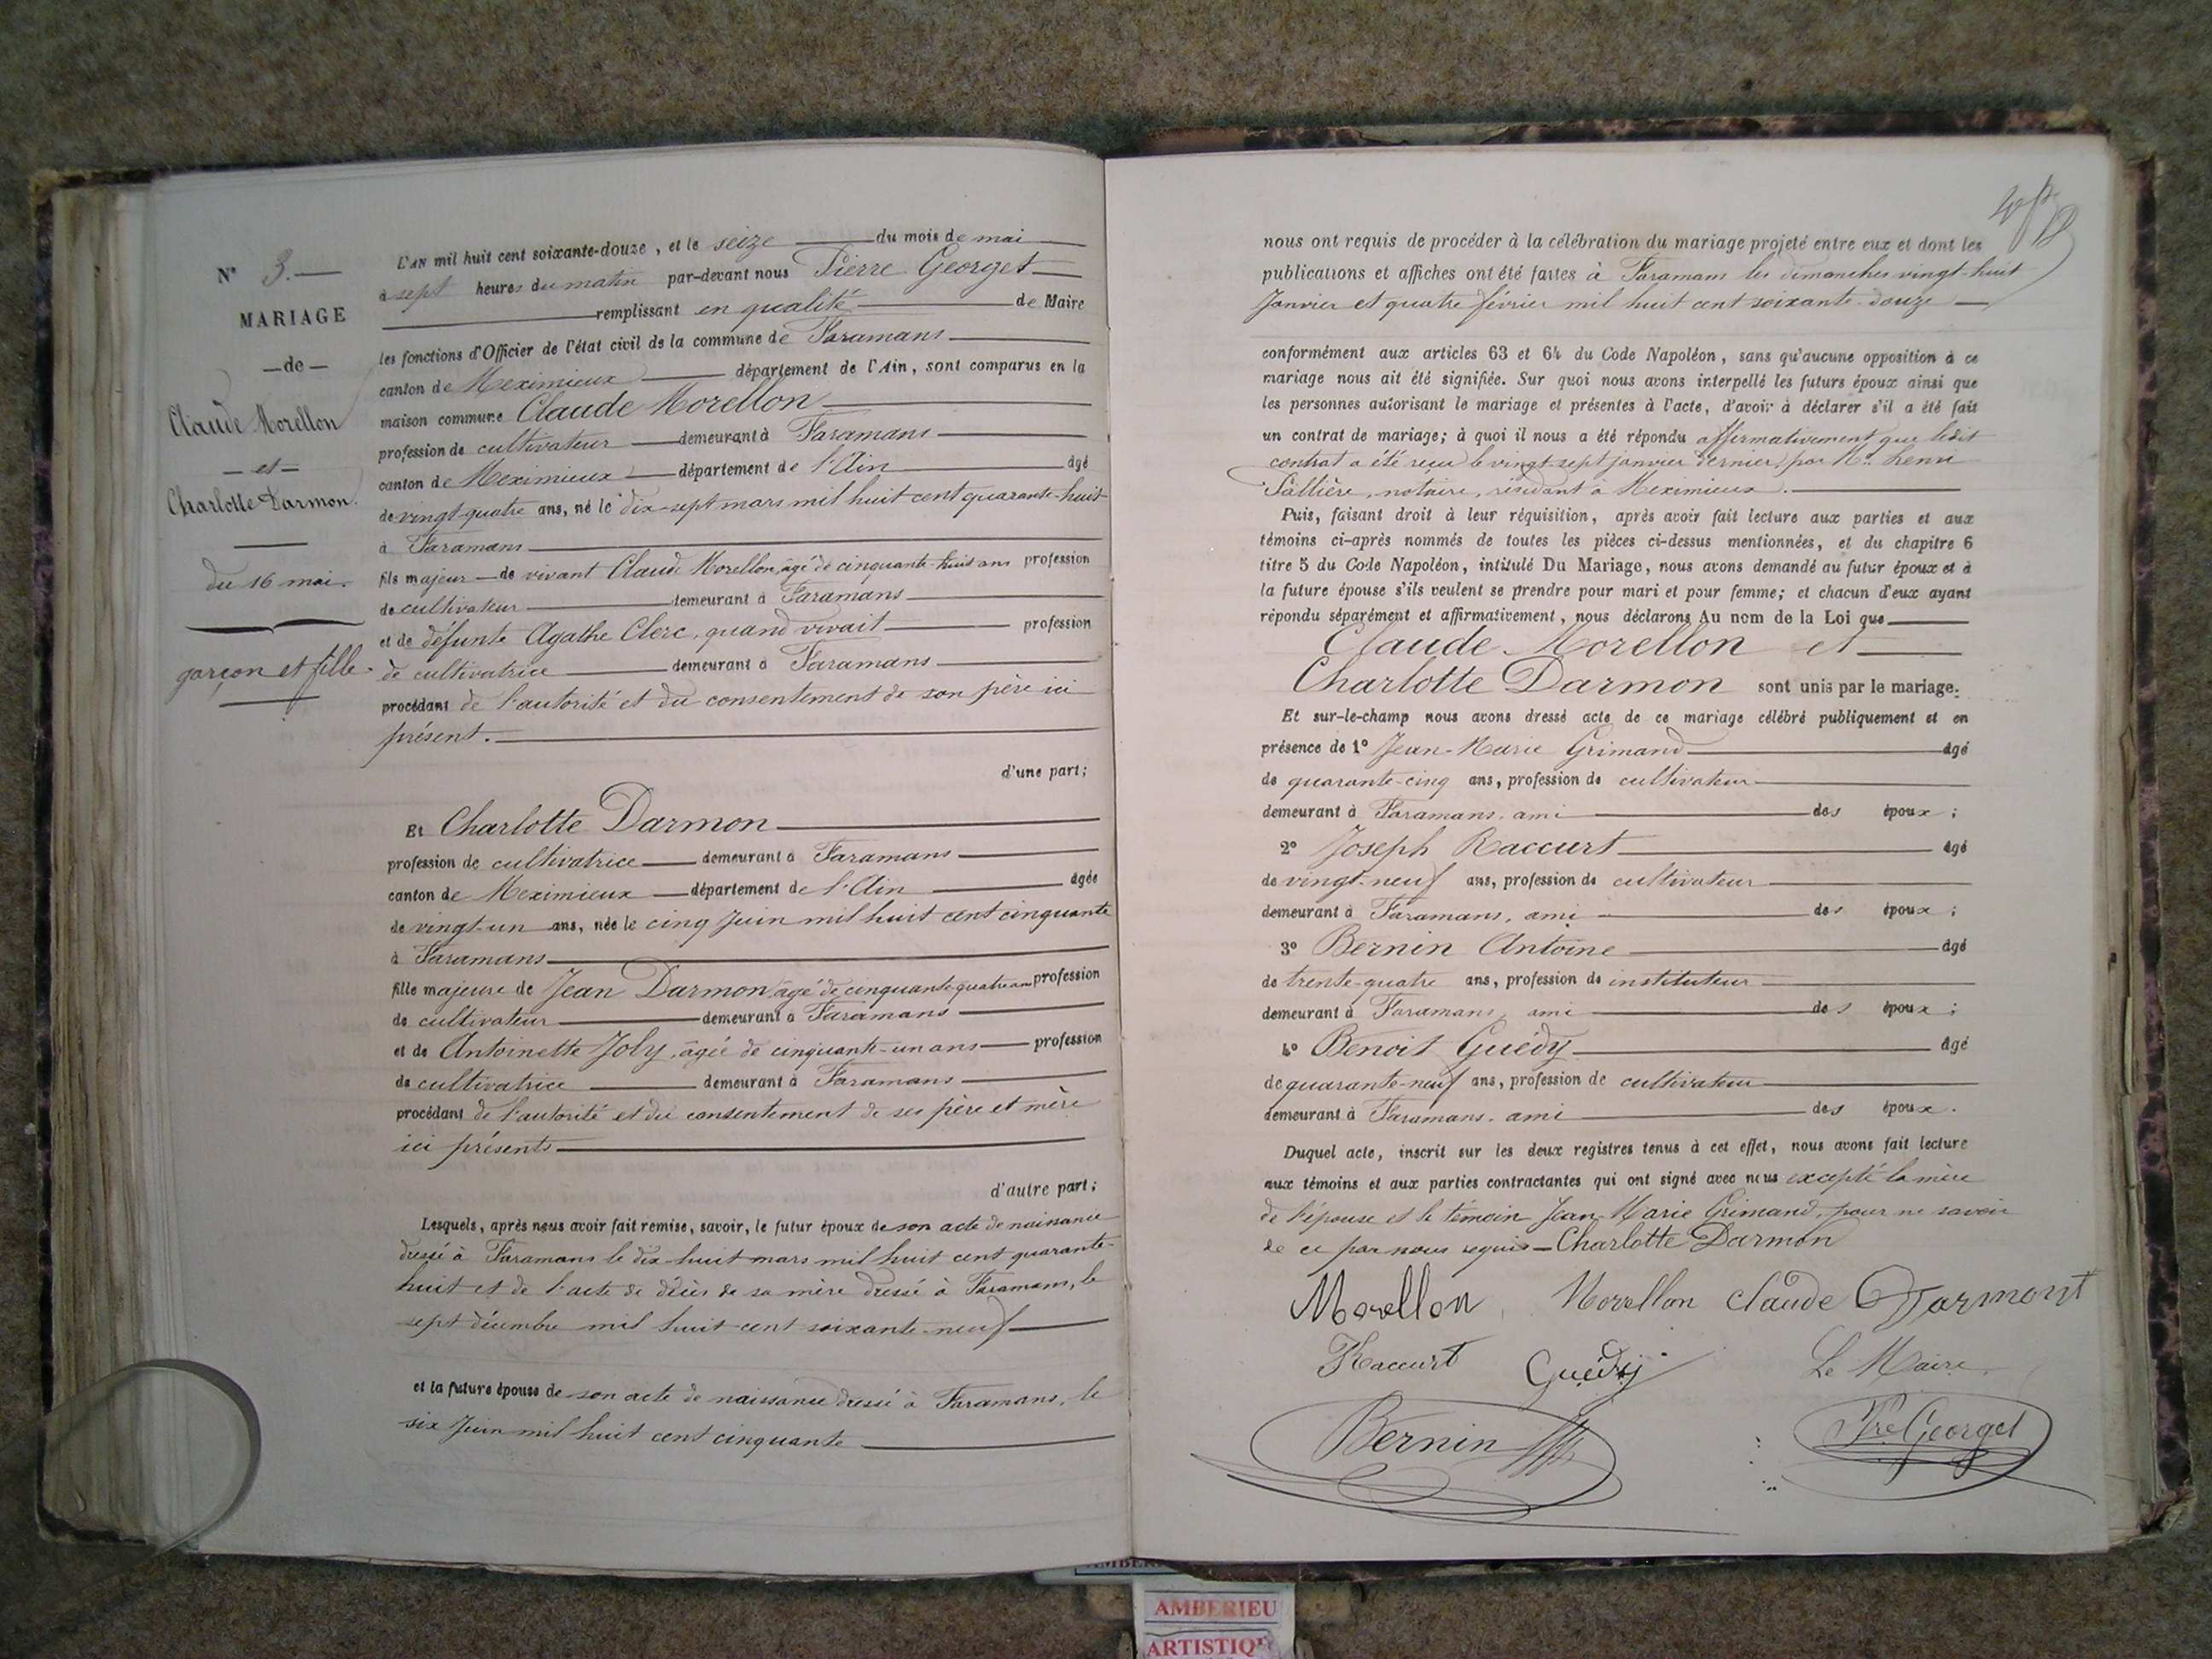 N° 3.
MARIAGE
de
Claude Morellon
et
Charlotte Darmon.
du 16 mai.
garçon et fille
L'AN mil huit cent soixante-douze, et le seize du mois de mai
à sept heures du matin par-devant nous Pierre Georget
remplissant en qualité de Maire
les fonctions d'Officier de l'état civil de la commune de Faramans
canton de Meximieux département de l'Ain, sont comparus en la
maison commune Claude Morellon
profession de cultivateur demeurant à Faramans
canton de Meximieux département de l'Ain âgé
de vingt-quatre ans, né le dix-sept mars mil huit cent quarante-huit
à Faramans
fils majeur de vivant Claude Morellon, âgé de cinquante-huit ans profession
de cultivateur demeurant à Faramans
et de défunte Agathe Clerc, quand vivait profession
de cultivatrice demeurant à Faramans
procédant de l'autorité et du consentement de son père ici
présent.
d'une part;
Et Charlotte Darmon
profession de cultivatrice demeurant à Faramans
canton de Meximieux département de l'Ain âgée
de vingt-un ans, née le cinq Juin mil huit cent cinquante
à Faramans
fille majeure de Jean Darmon âgé de cinquante-quatre ans profession
de cultivateur demeurant à Faramans
et de Antoinette Joly, âgée de cinquante-un ans profession
de cultivatrice demeurant à Faramans
procédant de l'autorité et du consentement de ses père et mère
ici présents
d'autre part;
Lesquels, après nous avoir fait remise, savoir, le futur époux de son acte de naissance
dressé à Faramans le dix-huit mars mil huit cent quarante-
huit et de l'acte de décès de sa mère dressé à Faramans, le
sept décembre mil huit cent soixante-neuf
et la future épouse de son acte de naissance dressé à Faramans, le
six Juin mil huit cent cinquante
nous ont requis de procéder à la célébration du mariage projeté entre eux et dont les
publications et affiches ont été faites à Faramans les dimanches vingt-huit
Janvier et quatre février mil huit cent soixante-douze
conformément aux articles 63 et 64 du Code Napoléon, sans qu'aucune opposition à ce
mariage nous ait été signifiée. Sur quoi nous avons interpellé les futurs époux ainsi que
les personnes autorisant le mariage et présentes à l'acte, d'avoir à déclarer s'il a été fait
un contrat de mariage; à quoi il nous a été répondu affirmativement que ledit
contrat a été reçu le vingt-sept janvier dernier, par Me. henri
Sallière, notaire, résidant à Meximieux.
Puis, faisant droit à leur réquisition, après avoir fait lecture aux parties et aux
témoins ci-après nommés de toutes les pièces ci-dessus mentionnées, et du chapitre 6
titre 5 du Code Napoléon, intitulé Du Mariage, nous avons demandé au futur époux et à
la future épouse s'ils veulent se prendre pour mari et pour femme; et chacun d'eux ayant
répondu séparément et affirmativement, nous déclarons Au nom de la Loi que
Claude Morellon et
Charlotte Darmon sont unis par le mariage.
Et sur-le-champ nous avons dressé acte de ce mariage célébré publiquement et en
présence de 1° Jean-Marie Grimand âgé
de quarante-cinq ans, profession de cultivateur
demeurant à Faramans, ami des époux;
2° Joseph Raccurt âgé
de vingt-neuf ans, profession de cultivateur
demeurant à Faramans, ami des époux;
3° Bernin Antoine âgé
de trente-quatre ans, profession de instituteur
demeurant à Faramans, ami des époux;
4° Benoit Guédy âgé
de quarante-neuf ans, profession de cultivateur
demeurant à Faramans, ami des époux.
Duquel acte, inscrit sur les deux registres tenus à cet effet, nous avons fait lecture
aux témoins et aux parties contractantes qui ont signé avec nous excepté la mère
de l'épouse et le témoin Jean-Marie Grimand, pour ne savoir
de ce par nous requis - Charlotte Darmon
Morellon Morellon claude Darmont
Raccurt Guédy Le Maire,
Bernin Pre Georget
AMBERIEU
ARTISTIQU